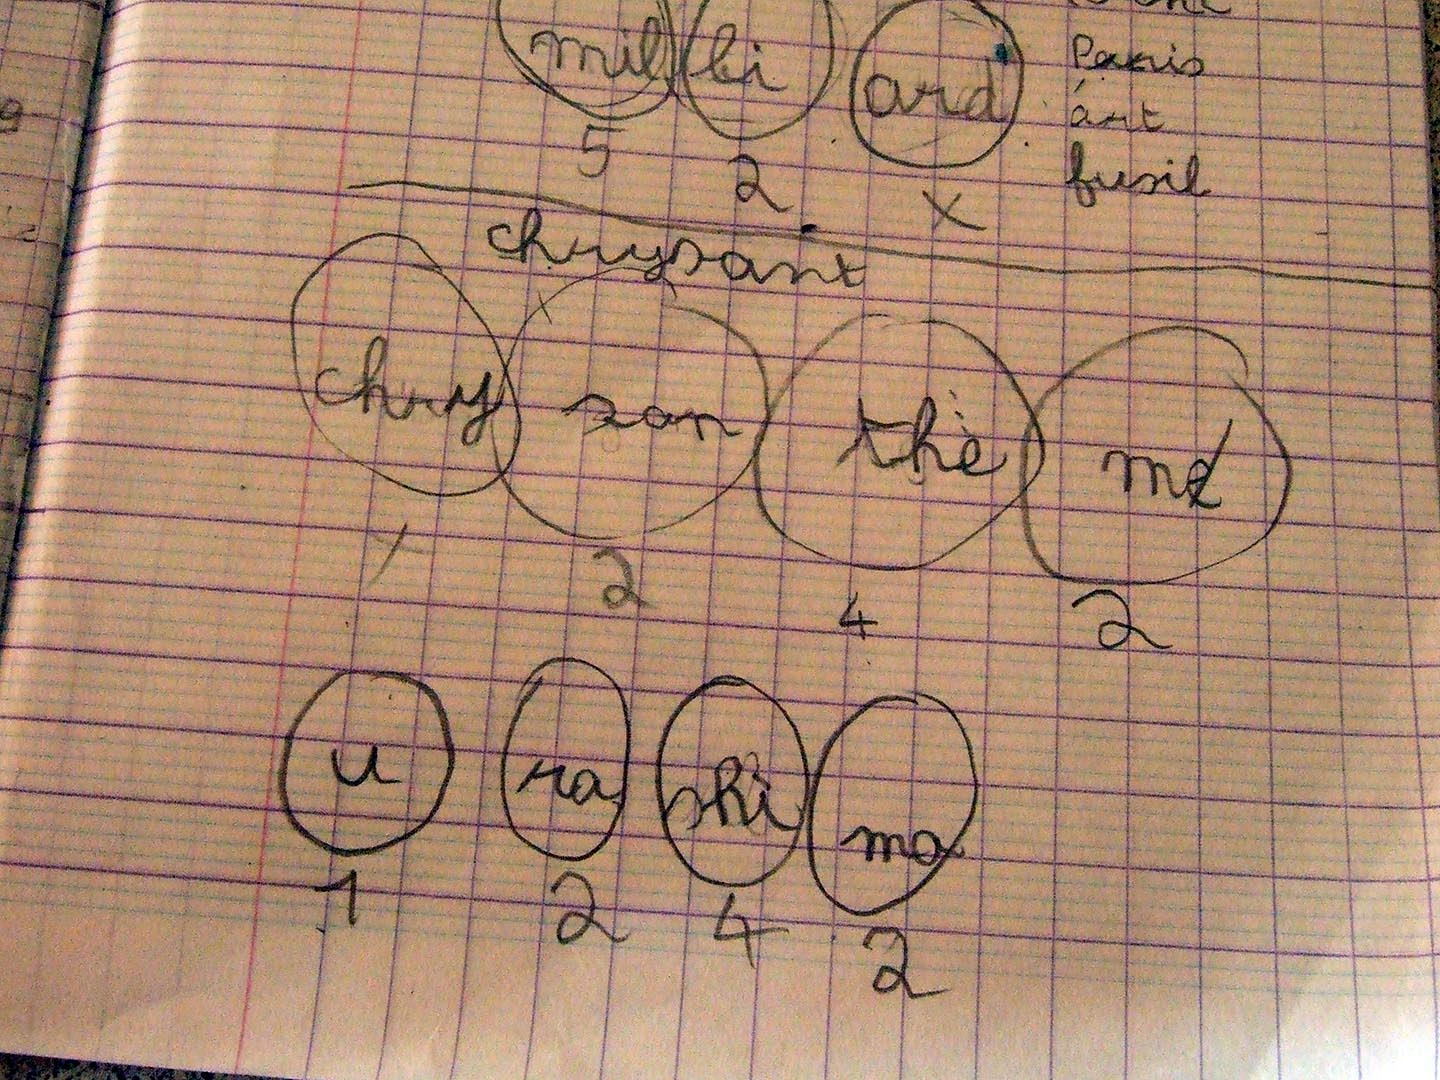 mil li ard
Paris
árt
5 2 x
fusil
chrysant
chry san thè me
2 4 2
u ra shi ma
1 2 4 2